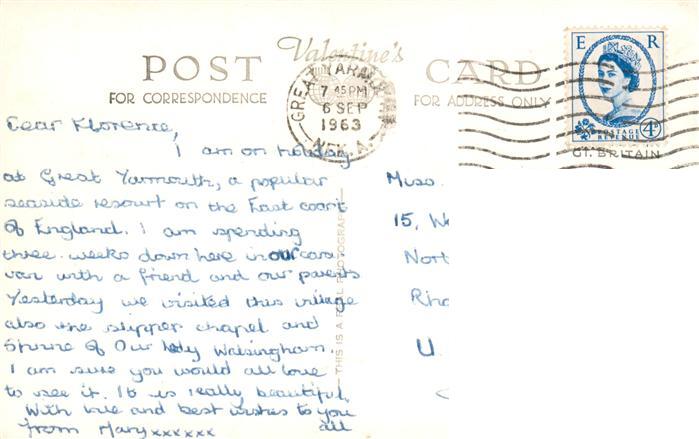 Valentine's
POST CARD
FOR CORRESPONDENCE
FOR ADDRESS ONLY
GREAT YARMOUTH
7 45 PM
6 SEP
1963
E R
POSTAGE
REVENUE
4D
GT. BRITAIN
THIS IS A REAL PHOTOGRAPH
Dear Florence,
I am on holiday
at Great Yarmouth, a popular
seaside resourt on the East coast
of England. I am spending
three weeks down here in our cara-
van with a friend and our parents
Yesterday we visited this village
also the slipper chapel and
Shrine of Our Lady Walsingham.
I am sure you would all love
to see it. It is really beautiful.
With love and best wishes to you
from Mary xxxxxx all
Miss
15, W
Nort
Rho
U.